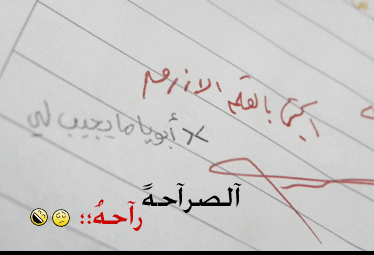 اكتبي بالقلم الازرق
أبويا ما يجيب لي
آلـصـرآحـةً
رآحـهُ؛؛